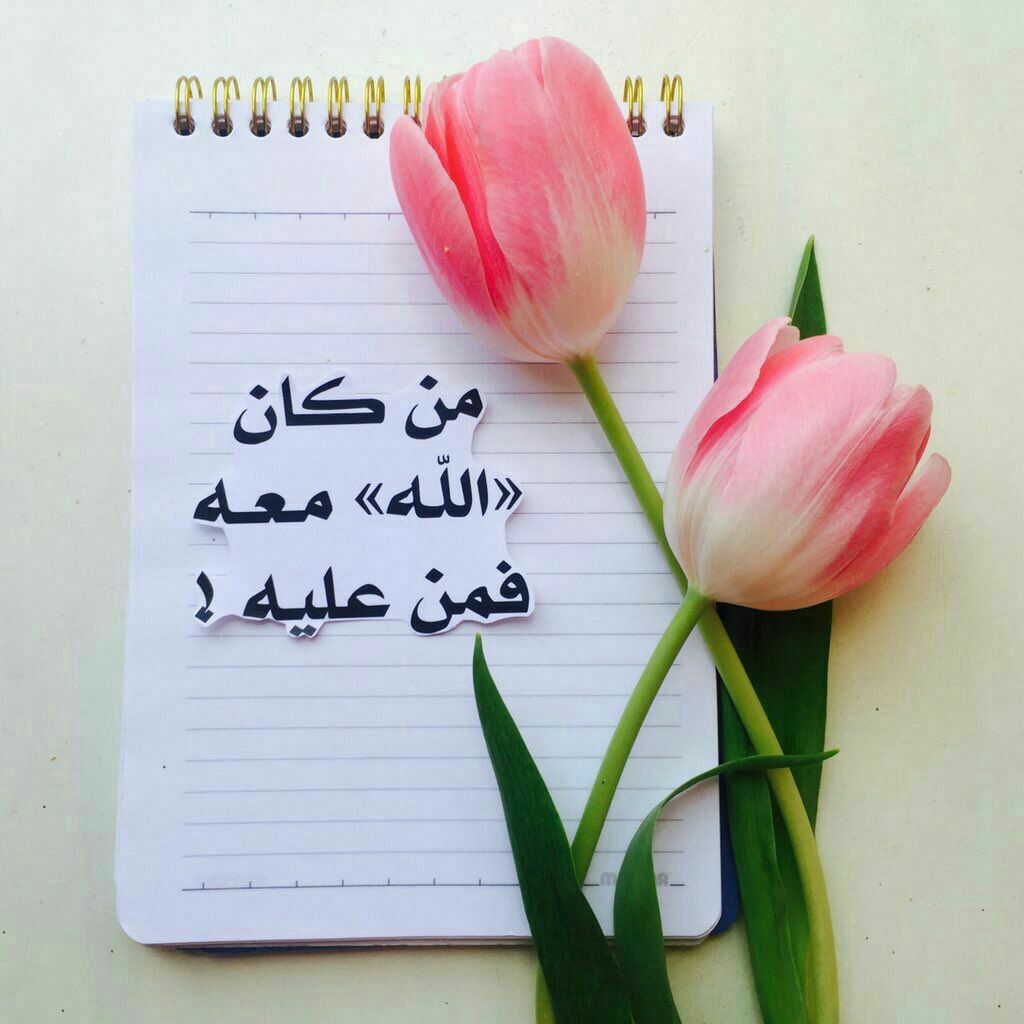 من كان
«اللّه» معه
فمن عليه !